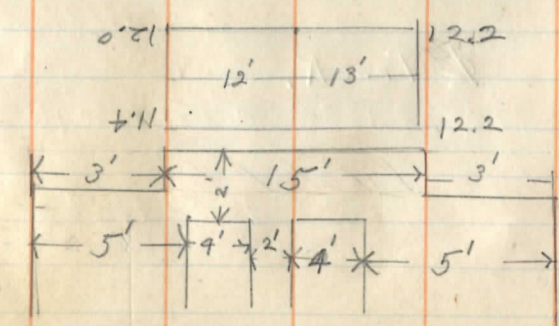 12.0 12.2
12' 13'
11.4 12.2
3' 2' 15' 3'
5' 4' 2' 4' 5'